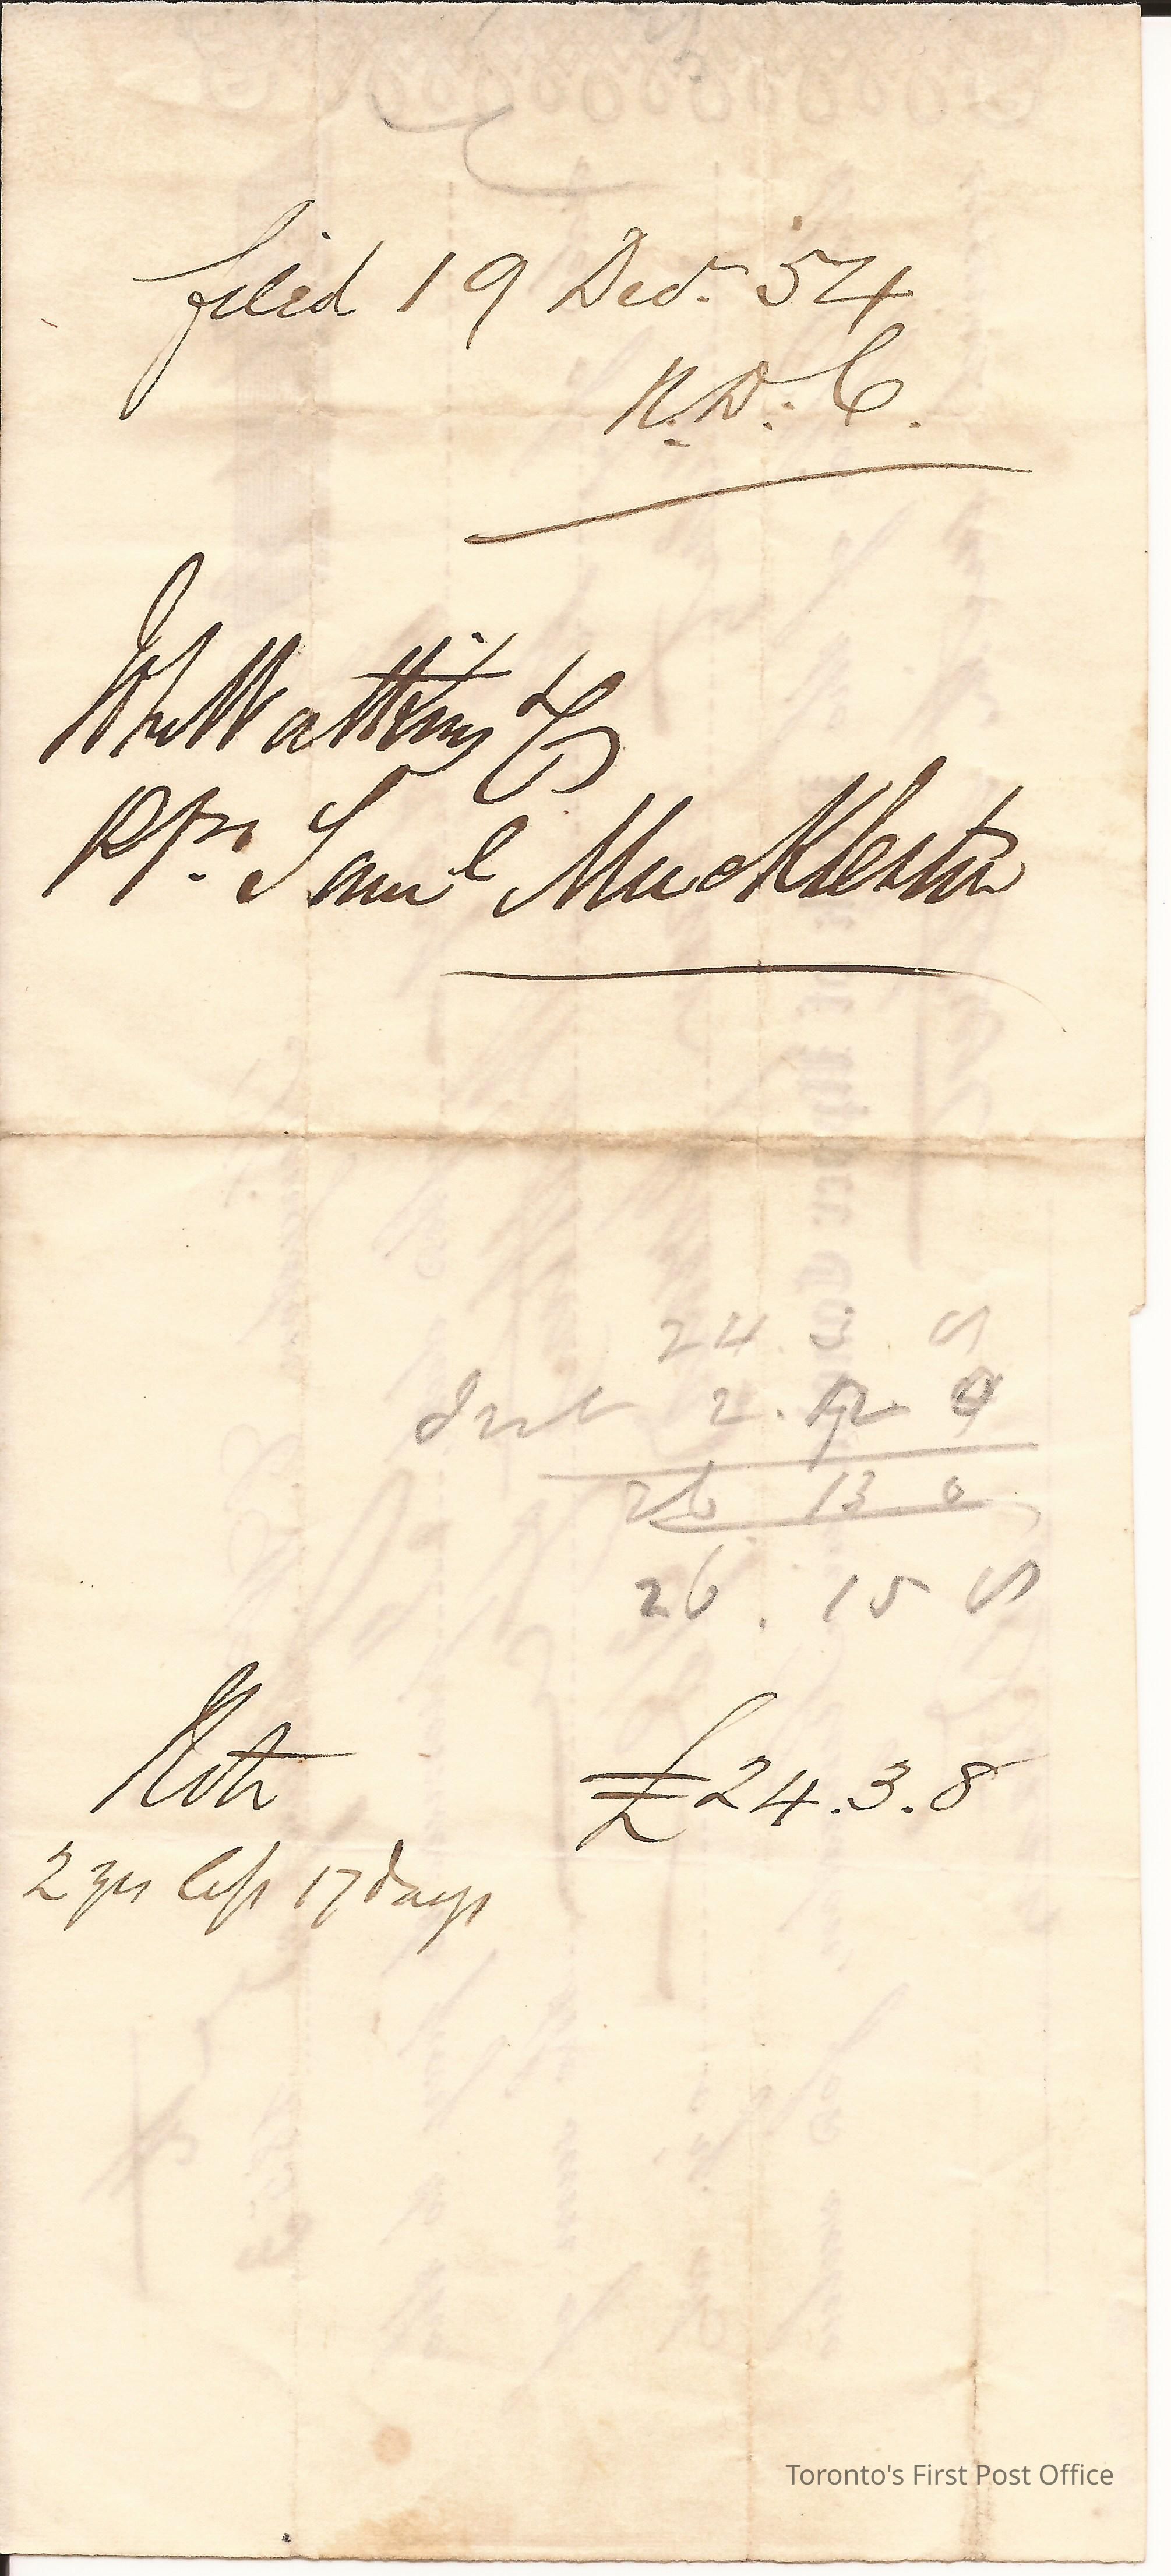 filed 19 Decr. 54
N. D. C.
Jno Watkins & Co
pr. Pro. Saml Mucklestin
24 . 3 . 8
Int 2 . 12 . 0
26 13 0
26 . 15 8
Note £24.3.8
2 yrs less 17 days
Toronto's First Post Office